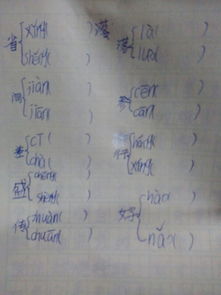 省{xǐng( )
shěng( )
间{jiàn( )
jiān( )
差{cī( )
chà( )
盛{chéng( )
shèng( )
传{zhuàn( )
chuán( )
落{là( )
luò( )
参{cēn( )
cān( )
{háng( )
xíng( )
好{hào( )
hǎo( )